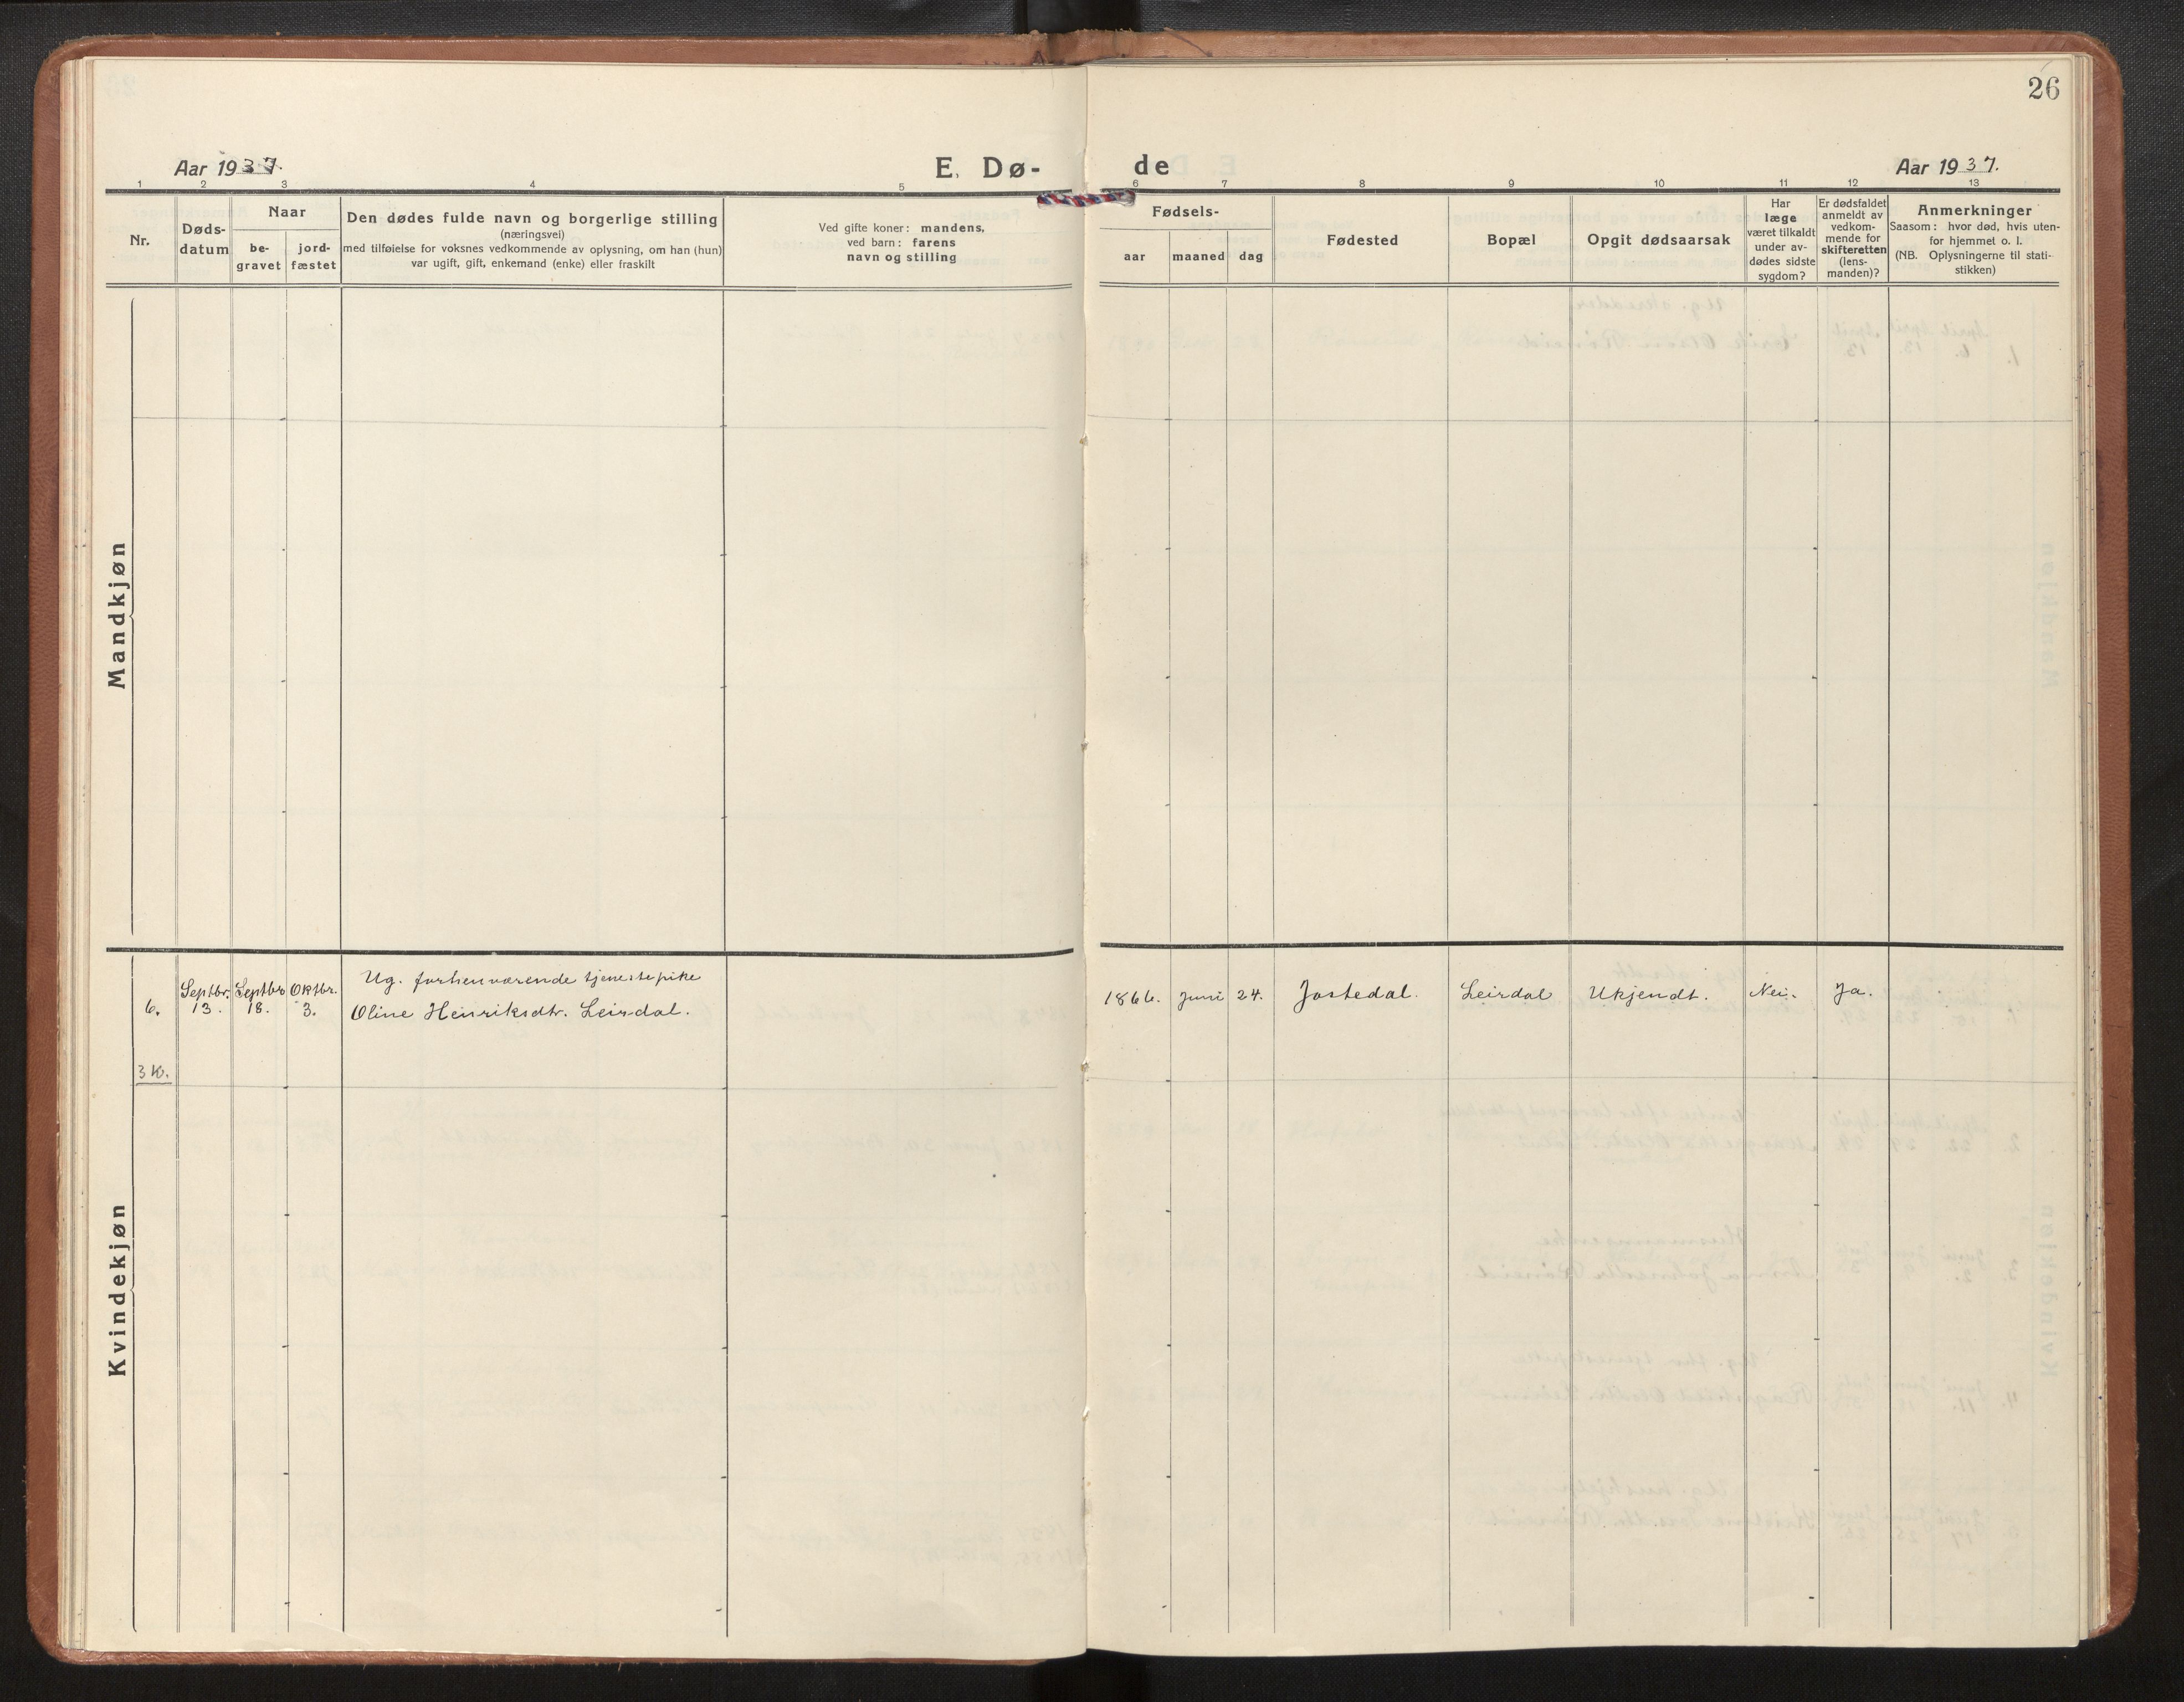 26
Aar 1937.
E. Dø-
de
Aar 1937.
1 2 3 4 5 6 7 8 9 10 11 12 13
Nr.
Døds-
datum
Naar
be-
gravet
jord-
fæstet
Den dødes fulde navn og borgerlige stilling
(næringsvei)
med tilføielse for voksnes vedkommende av oplysning, om han (hun)
var ugift, gift, enkemand (enke) eller fraskilt
Ved gifte koner: mandens,
ved barn: farens
navn og stilling
Fødsels-
aar maaned dag
Fødested
Bopæl
Opgit dødsaarsak
Har
læge
været tilkaldt
under av-
dødes sidste
sygdom?
Er dødsfaldet
anmeldt av
vedkom-
mende for
skifteretten
(lens-
manden)?
Anmerkninger
Saasom: hvor død, hvis uten-
for hjemmet o. l.
(NB. Oplysningerne til stati-
stikken)
Mandkjøn
Kvindekjøn
6.
Septbr.
13.
Septbr
18.
Oktbr.
3.
Ug. forhenværende tjenestepike
Oline Henriksdtr. Leirdal.
1866. Juni 24. Jostedal. Leirdal Ukjendt. Nei. Ja.
3 K.